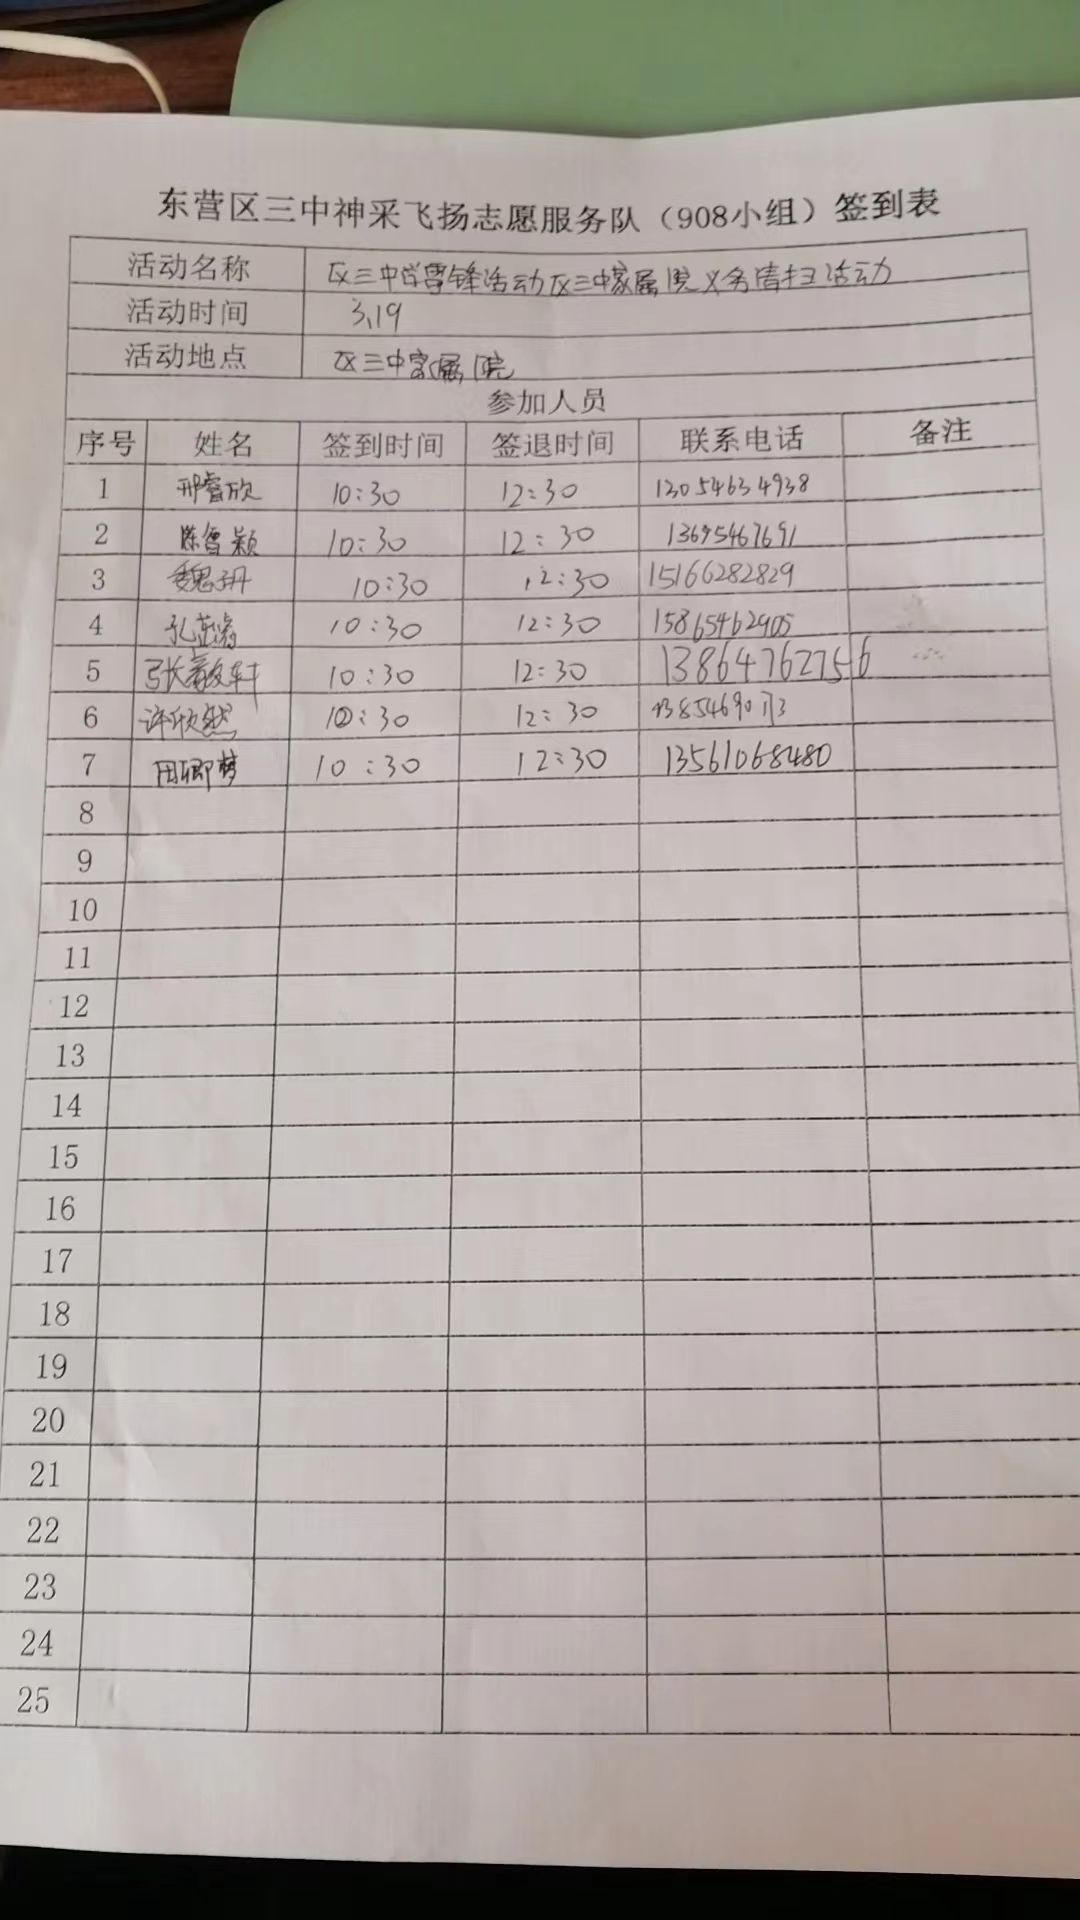 东营区三中神采飞扬志愿服务队（908小组）签到表
活动名称 区三中学雷锋活动区三中家属院义务清扫活动
活动时间 3.19
活动地点 区三中家属院
参加人员
序号 姓名 签到时间 签退时间 联系电话 备注
1 邢睿欣 10:30 12:30 13054634938
2 陈鲁颖 10:30 12:30 13695467691
3 魏子玥 10:30 12:30 15166282829
4 10:30 12:30 15865462905
5 10:30 12:30 13864762756
6 许欣然 10:30 12:30
7 田卿梦 10:30 12:30 13561068480
8
9
10
11
12
13
14
15
16
17
18
19
20
21
22
23
24
25